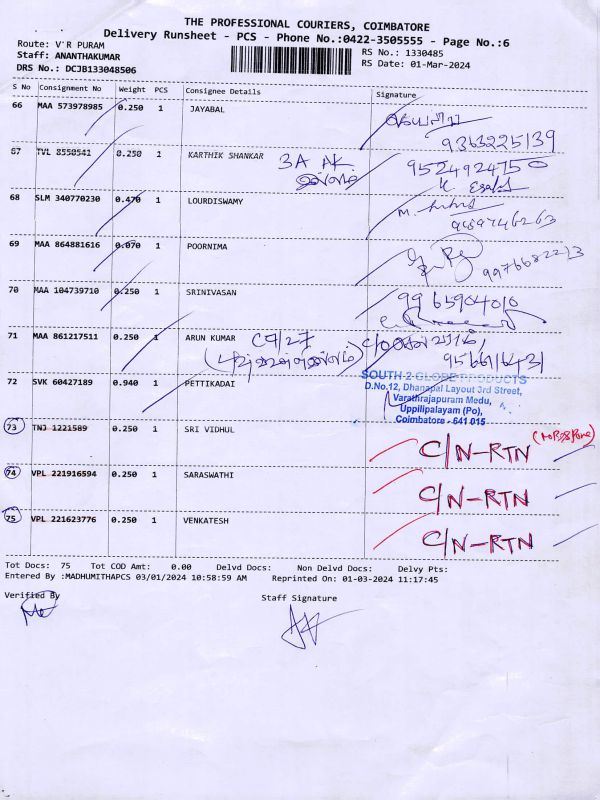 THE PROFESSIONAL COURIERS, COIMBATORE
Delivery Runsheet - PCS - Phone No.:0422-3505555 - Page No.:6
Route: V'R PURAM
Staff: ANANTHAKUMAR
DRS No.: DCJB133048506
RS No.: 1330485
RS Date: 01-Mar-2024
S No Consignment No Weight PCS Consignee Details Signature
66 MAA 573978985 0.250 1 JAYABAL
9363225139
67 TVL 8550541 0.250 1 KARTHIK SHANKAR 3A AK 9524924750
இல்லம்
68 SLM 340770230 0.470 1 LOURDISWAMY
9489746263
69 MAA 864881616 0.070 1 POORNIMA
9976682213
70 MAA 104739710 0.250 1 SRINIVASAN 9965904010
71 MAA 861217511 0.250 1 ARUN KUMAR
9566116431
72 SVK 60427189 0.940 1 PETTIKADAI
SOUTH-2 GLOBE PRODUCTS
D.No.12, Dhanapal Layout 3rd Street,
Varathrajapuram Medu,
Uppilipalayam (Po),
Coimbatore - 641 015
73 TNJ 1221589 0.250 1 SRI VIDHUL C/N-RTN
74 VPL 221916594 0.250 1 SARASWATHI C/N-RTN
75 VPL 221623776 0.250 1 VENKATESH C/N-RTN
Tot Docs: 75 Tot COD Amt: 0.00 Delvd Docs: Non Delvd Docs: Delvy Pts:
Entered By :MADHUMITHAPCS 03/01/2024 10:58:59 AM Reprinted On: 01-03-2024 11:17:45
Verified By Staff Signature